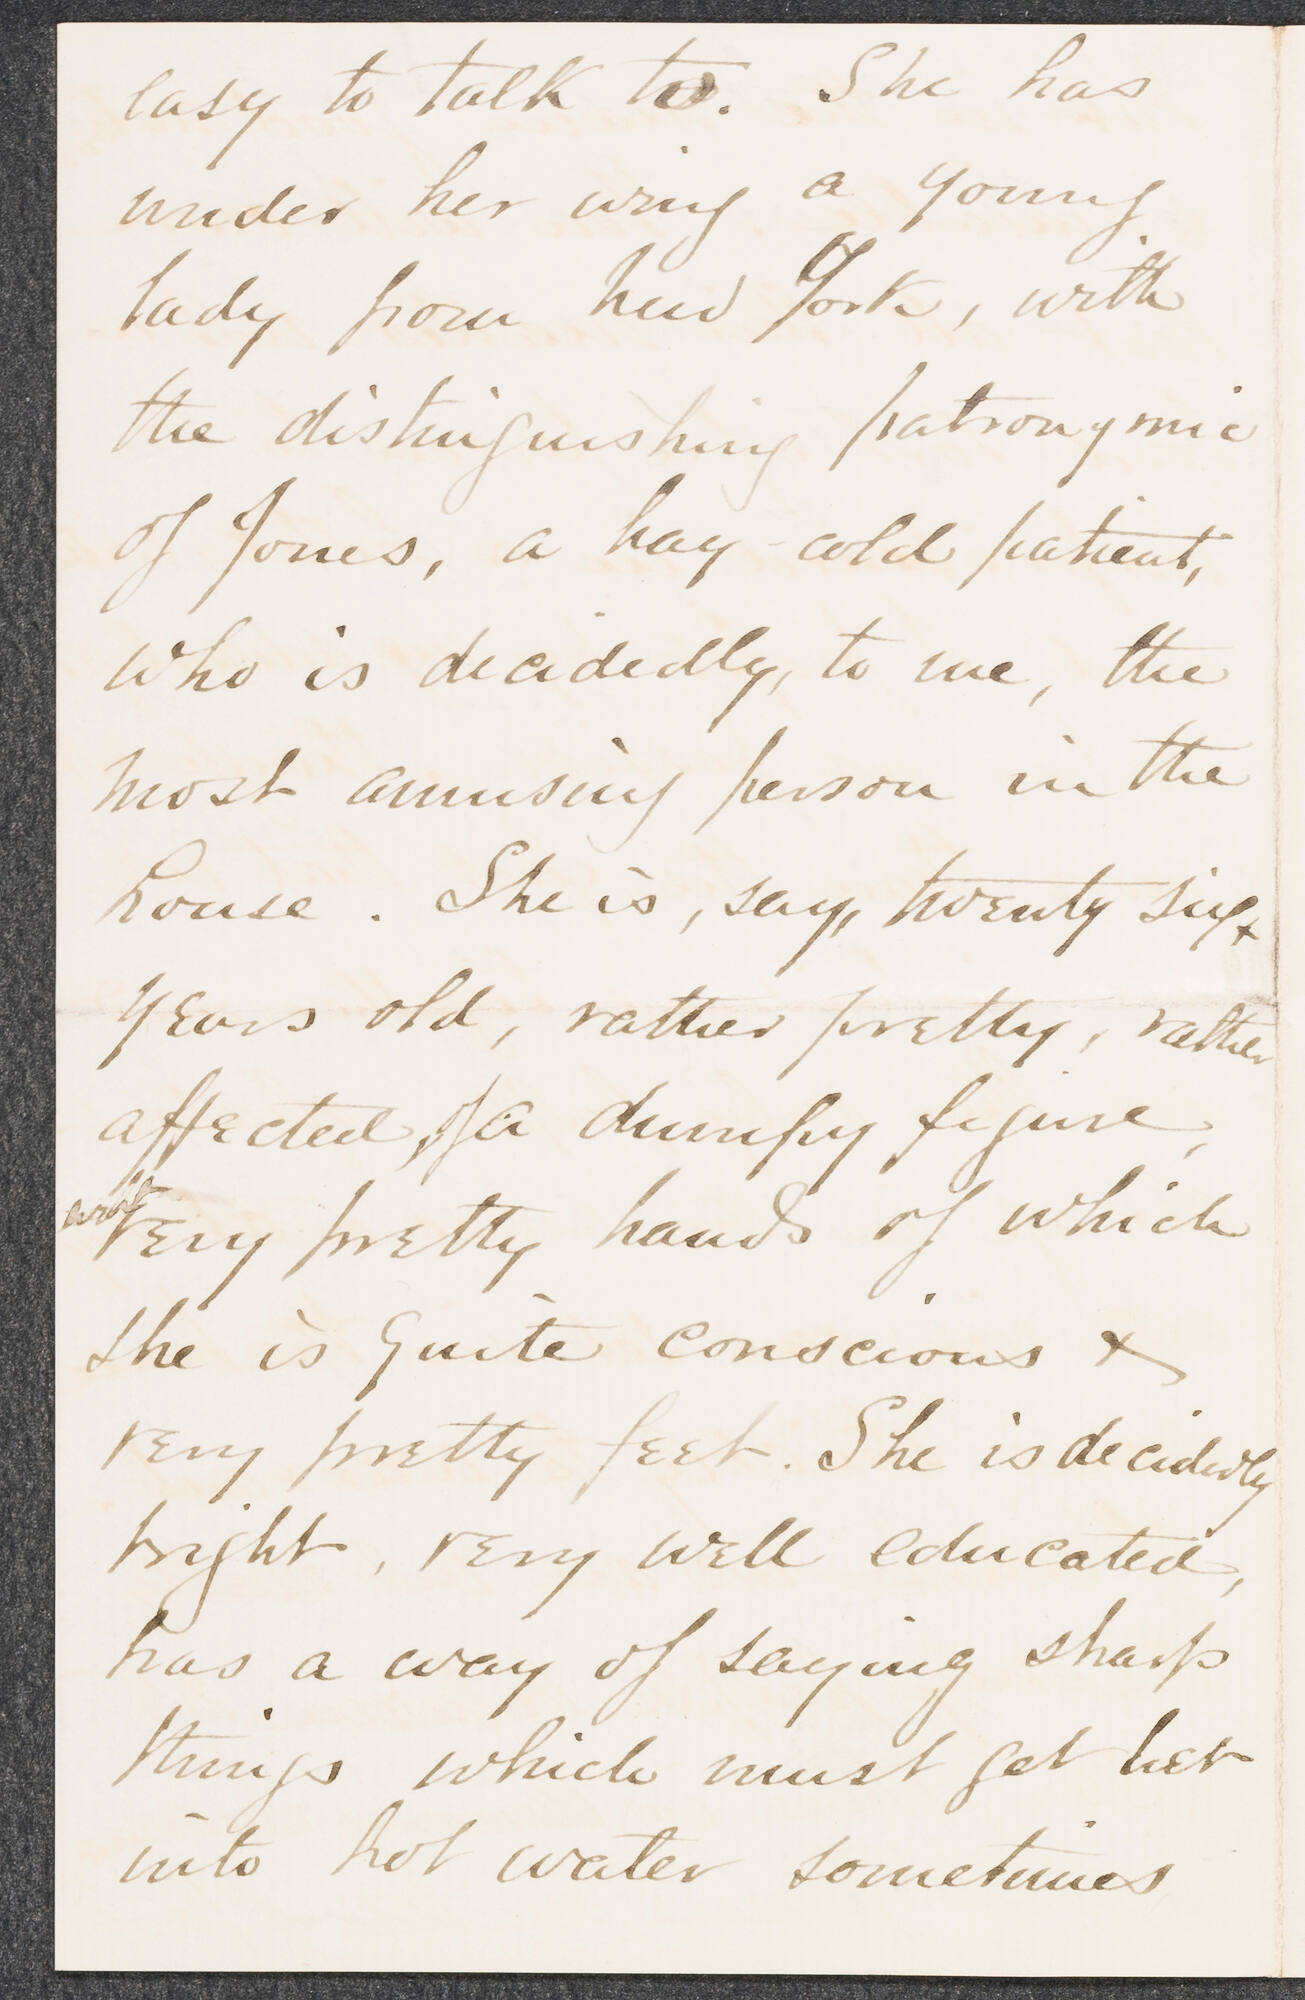 easy to talk to. She has
under her wing a young
lady from New York, with
the distinguishing patronymic
of Jones, a hay-cold patient,
who is decidedly, to me, the
most amusing person in the
house. She is, say, twenty six
years old, rather pretty, rather
affected, of a dumpy figure,
with very pretty hands of which
she is quite conscious &
very pretty feet. She is decidedly
bright, very well educated,
has a way of saying sharp
things which must get her
into hot water sometimes